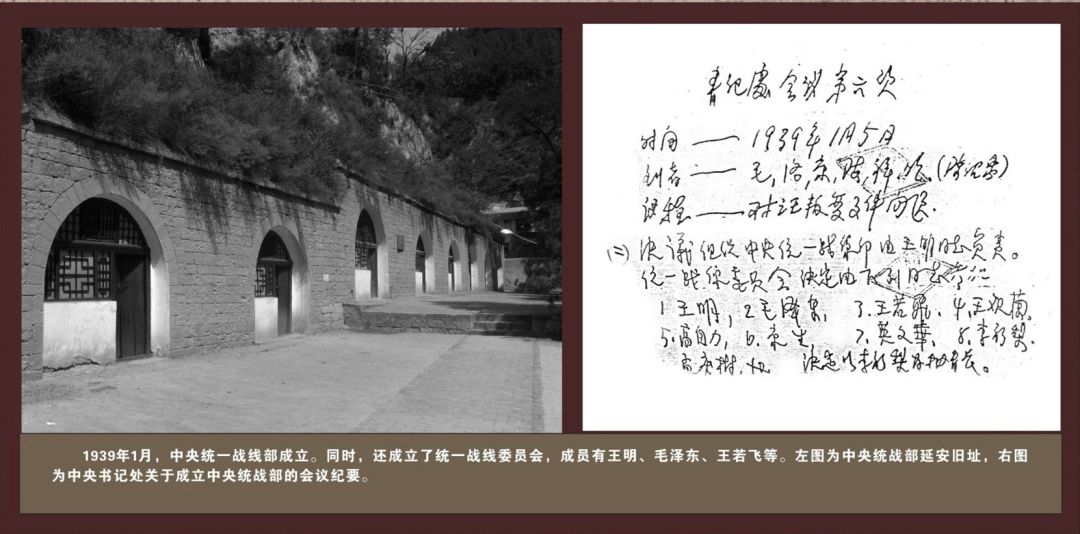 书记处会议第六次
时间——1939年1月5日
到者——毛,洛,康,陈,
(二)决议组织中央统一战线部由王明同志负责。
统一战线委员会决定由下列同志
1.王明,2.毛泽东,3.王若飞,4.王次菊,
5.高自力,6.康生,7.莫文华,8.李初梨,
决定以李初梨
1939年1月,中央统一战线部成立。同时,还成立了统一战线委员会,成员有王明、毛泽东、王若飞等。左图为中央统战部延安旧址,右图
为中央书记处关于成立中央统战部的会议纪要。